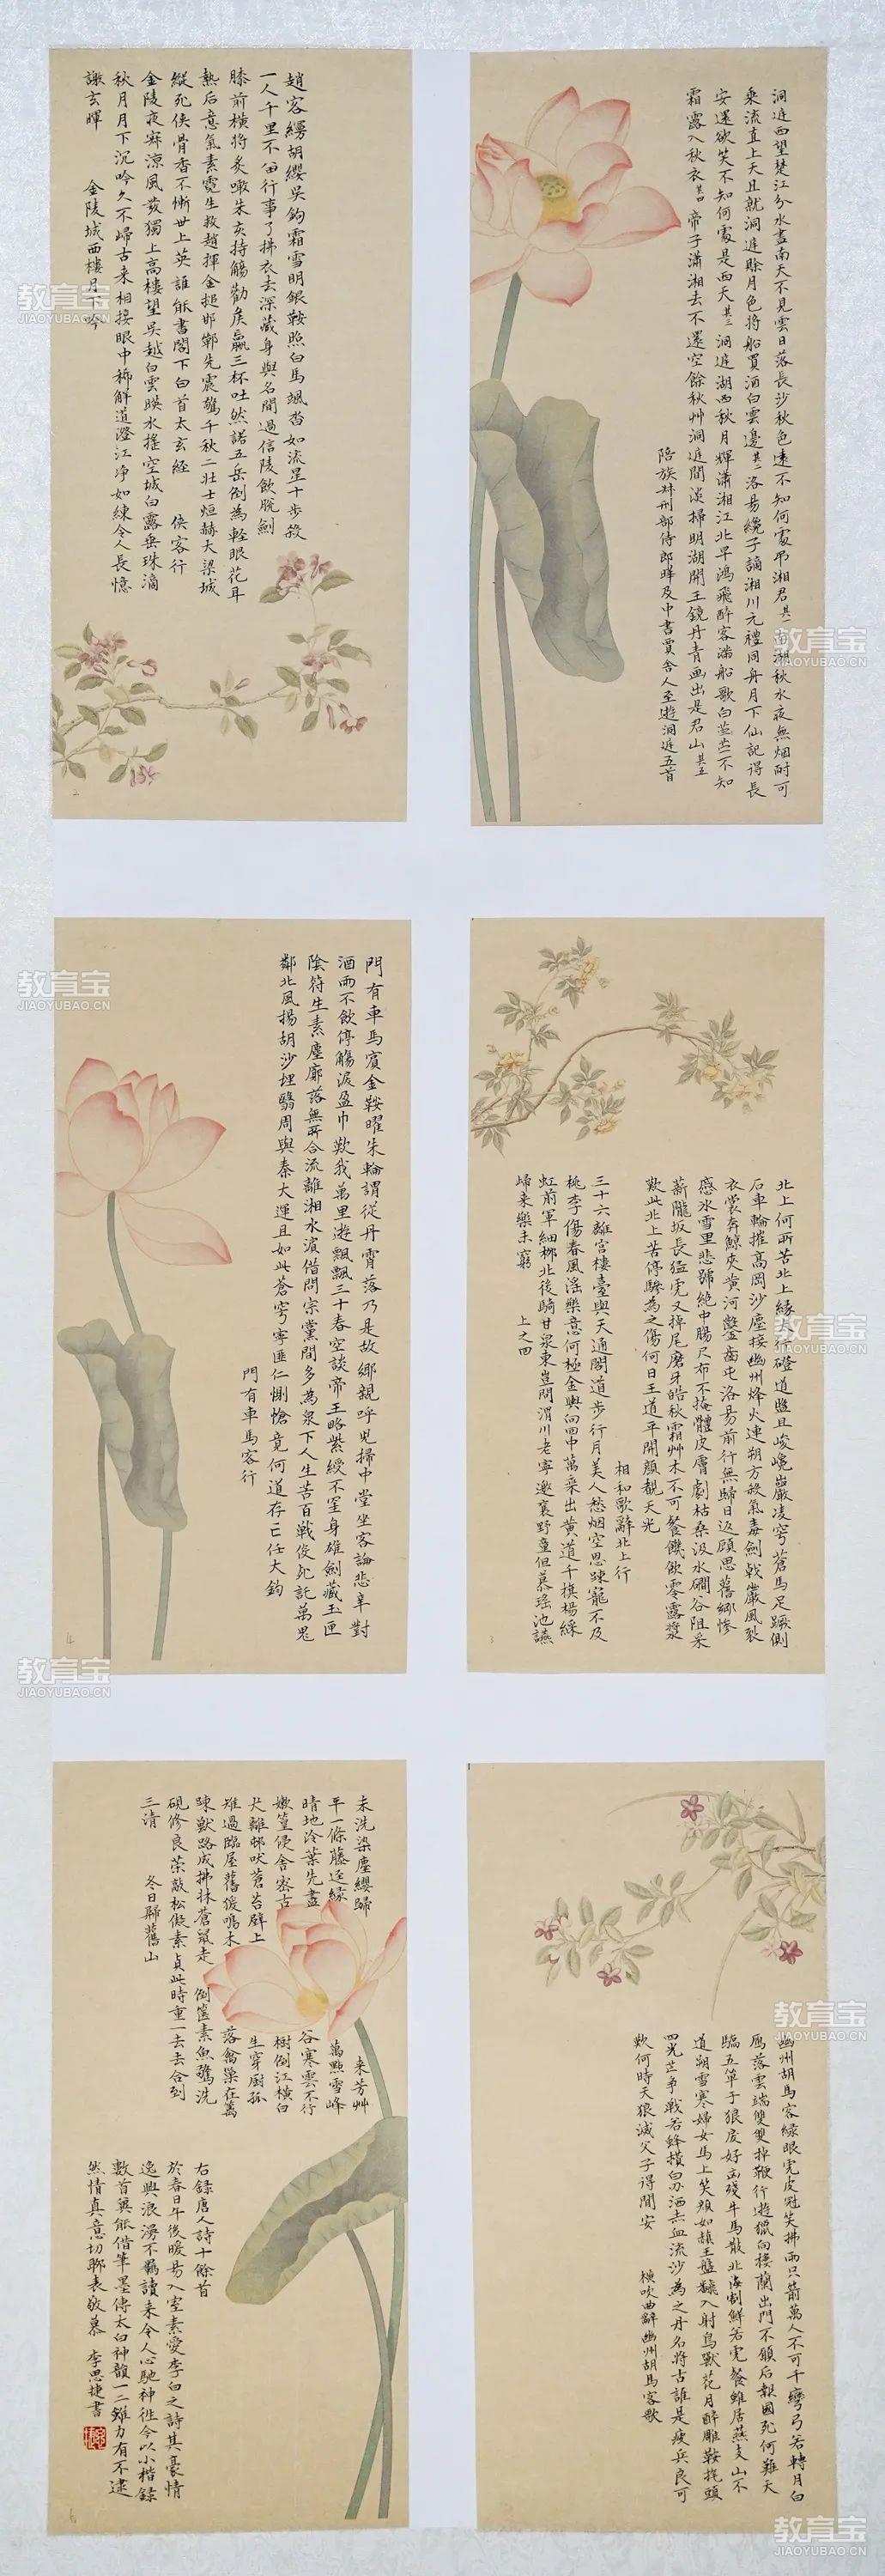 洞庭西望楚江分水盡南天不見雲日落長沙秋色遠不知何處弔湘君其一南湖秋水夜無烟耐可
乘流直上天且就洞庭賖月色將船買酒白雲邊其二洛昜才子謫湘川元禮同舟月下仙記得長
安還欲笑不知何處是西天其三洞庭湖西秋月輝瀟湘江北早鴻飛醉客滿船歌白苧不知
霜露入秋衣其四帝子瀟湘去不還空餘秋艸洞庭間淡掃明湖開玉鏡丹青画出是君山其五
陪族叔刑部侍郎曄及中書賈舍人至遊洞庭五首
趙客縵胡纓吳鉤霜雪明銀鞍照白馬颯沓如流星十步殺
一人千里不留行事了拂衣去深藏身與名閒過信陵飲脫劍
膝前橫將炙噉朱亥持觴勸矦嬴三杯吐然諾五岳倒為輕眼花耳
熱后意氣素霓生救趙揮金搥邯鄲先震驚千秋二壯士烜赫大梁城
縱死俠骨香不慚世上英誰能書閣下白首太玄經 俠客行
金陵夜寂涼風發獨上高樓望吳越白雲映水搖空城白露垂珠滴
秋月月下沉吟久不歸古来相接眼中稀解道澄江净如練令人長憶
謝玄暉 金陵城西樓月下吟
北上何所苦北上緣太行磴道盤且峻巉巖凌穹蒼馬足蹶側
石車輪摧高岡沙塵接幽州烽火連朔方殺氣毒劍戟嚴風裂
衣裳奔鯨夾黄河鑿齒屯洛昜前行無歸日返顧思舊鄉惨
慼冰雪里悲歸絶中腸尺布不掩體皮膚劇枯桑汲水礀谷阻采
薪隴坂長猛虎又掉尾磨牙皓秋霜艸木不可餐饑飲零露漿
歎此北上苦停驂為之傷何日王道平開顏覩天光
相和歌辭北上行
三十六離宫樓臺與天通閣道步行月美人愁烟空思踈寵不及
桃李傷春風滛樂意何極金輿向回中萬乘出黄道千旗楊綵
虹前軍細柳北後騎甘泉東豈問渭川老寧邀襄野童但慕瑶池讌
歸来樂未窮 上之回
門有車馬賓金鞍曜朱輪謂從丹霄落乃是故鄉親呼兒掃中堂坐客論悲辛對
酒兩不飲停觴淚盈巾歎我萬里遊飄飄三十春空談帝王略紫綬不罣身雄劍藏玉匣
陰符生素塵廓落無所合流離湘水濱借問宗黨間多為泉下人生苦百戰役死託萬鬼
鄰北風揚胡沙埋翳周與秦大運且如此蒼穹寧匪仁惻愴竟何道存亡任大鈞
門有車馬客行
幽州胡馬客緑眼虎皮冠笑拂兩只箭萬人不可干彎弓若轉月白
鴈落雲端雙雙掉鞭行遊獵向樓蘭出門不顧后報國死何難天
驕五單于狼戾好凶殘牛馬散北海割鮮若虎餐雖居燕支山不
道朔雪寒婦女馬上笑顏如赬玉盤飜飛射鳥獸花月醉雕鞍旄頭
四光芒爭戰若蜂攢白刃洒赤血流沙為之丹名將古誰是疲兵良可
歎何時天狼滅父子得閒安 橫吹曲辭幽州胡馬客歌
未洗染塵纓歸来芳艸
平一條藤逕緑萬點雪峰
晴地冷葉先盡谷寒雲不行
嫩篁侵舍密古樹倒江橫白
犬離邨吠蒼苔壁上生穿厨孤
雉過臨屋舊猨鳴木落禽巢在籬
踈獸路成拂牀蒼鼠走倒篋素魚驚洗
硯修良䇿敲松儗素貞此時重一去去合到
三清 冬日歸舊山
右録唐人詩十餘首
於春日午後暖昜入室素愛李白之詩其豪情
逸興浪湧不羈讀来令人心馳神徃今以小楷録
數首冀能借筆墨傳太白神韻一二雖力有不逮
然情真意切聊表敬慕 李思捷書
教育宝
JIAOYUBAO.CN
教育宝
JIAOYUBAO.CN
教育宝
JIAOYUBAO.CN
教育宝
JIAOYUBAO.CN
教育宝
JIAOYUBAO.CN
教育宝
JIAOYUBAO.CN
教育宝
JIAOYUBAO.CN